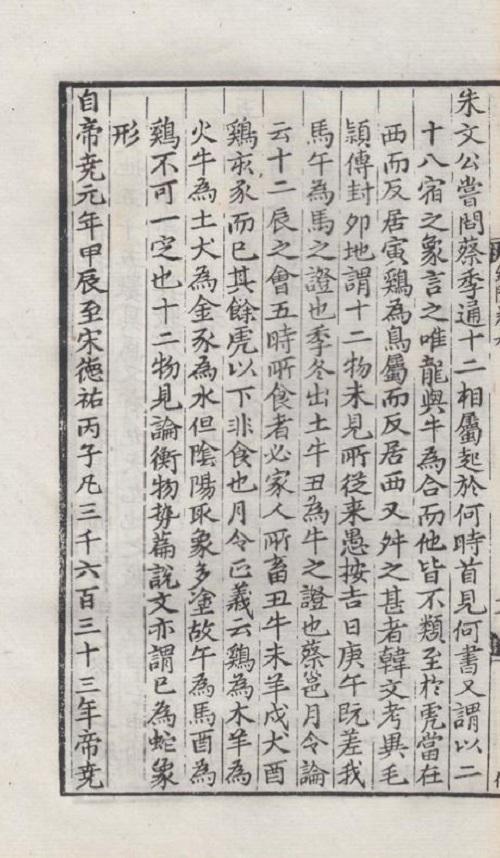 朱文公嘗問蔡季通十二相屬起於何時首見何書又謂以二
十八宿之象言之唯龍與牛為合而他皆不類至於虎當在
西而反居寅鷄為鳥屬而反居西又舛之甚者韓文考異毛
頴傳封卯地謂十二物未見所從来愚按吉日庚午既差我
馬午為馬之證也季冬出土牛丑為牛之證也蔡邕月令論
云十二辰之會五時所食者必家人所畜丑牛未羊戌犬酉
鷄亥豕而已其餘虎以下非食也月令正義云鷄為木羊為
火牛為土犬為金豕為水但隂陽取象多塗故午為馬酉為
鷄不可一定也十二物見論衡物勢篇說文亦謂巳為蛇象
形
自帝堯元年甲辰至宋德祐丙子凡三千六百三十三年帝堯